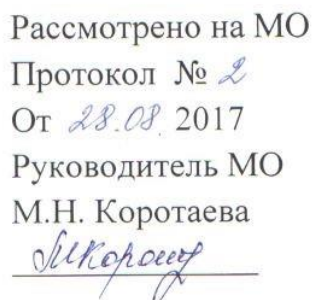 Рассмотрено на МО
Протокол № 2
От 28.08. 2017
Руководитель МО
М.Н. Коротаева